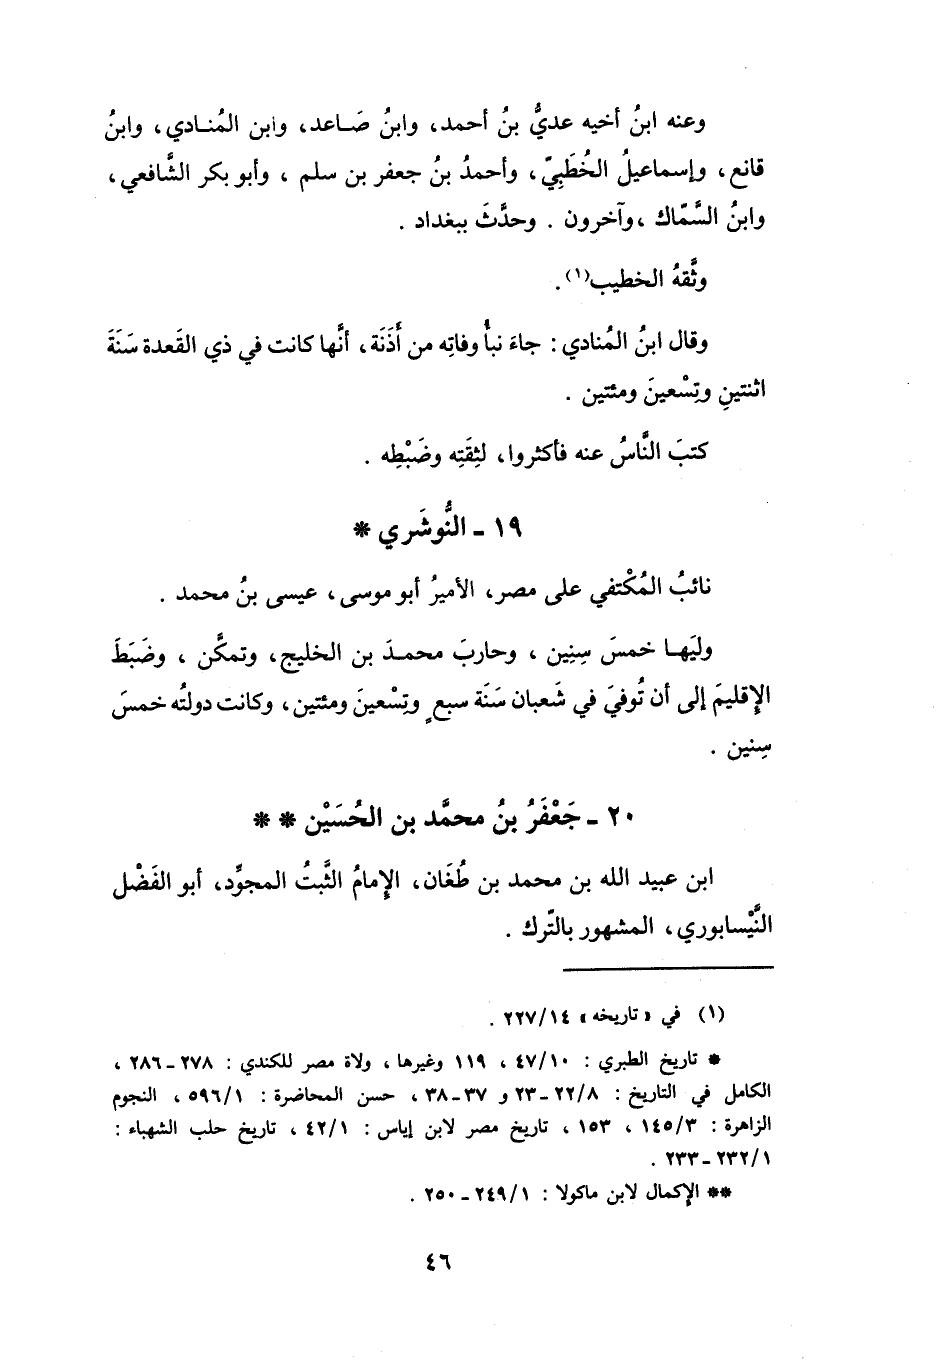 وعنه ابنُ أخيه عديُّ بنُ أحمد، وابنُ صَاعد، وابن المُنادي، وابنُ
قانع، وإسماعيلُ الخُطَبِيّ، وأحمدُ بنُ جعفر بن سلم ، وأبو بكر الشَّافعي،
وابنُ السَّمّاك ،وآخرون . وحدَّثَ ببغداد .
وثَّقهُ الخطيب(١) .
وقال ابنُ المُنادي : جاءَ نبأُ وفاتِه من أَذَنَة، أنَّها كانت في ذي القَعدة سَنَةَ
اثنتينِ وتِسْعينَ ومئتين .
كتبَ النَّاسُ عنه فأكثروا، لثِقَتِه وضَبْطِه .
١٩ - النُّوشَري *
نائبُ المُكْتفي على مصر، الأميرُ أبو موسى، عيسى بنُ محمد .
وليَها خمسَ سِنِين ، وحاربَ محمدَ بن الخليج، وتمكَّن ، وضَبَطَ
الإِقليمَ إلى أن تُوفيَ في شَعبان سَنَة سبعٍ وتِسْعينَ ومئتين، وكانت دولتُه خمسَ
سِنين .
٢٠ - جَعْفَرُ بنُ محمَّد بن الحُسَيْن * *
ابن عبيد الله بن محمد بن طُغَان، الإِمامُ الثَّبتُ المجوِّد، أبو الفَضْل
النَّيْسابوري، المشهور بالتّرك .
(١) في «تاريخه» ٢٢٧/١٤ .
* تاريخ الطبري : ٤٧/١٠ ، ١١٩ وغيرها، ولاة مصر للكندي : ٢٧٨ - ٢٨٦ ،
الكامل في التاريخ : ٢٢/٨ - ٢٣ و ٣٧ - ٣٨ ، حسن المحاضرة : ٥٩٦/١ ، النجوم
الزاهرة : ١٤٥/٣ ، ١٥٣ ، تاريخ مصر لابن إياس : ٤٢/١ ، تاريخ حلب الشهباء :
٢٣٢/١ - ٢٣٣ .
** الإكمال لابن ماكولا : ٢٤٩/١ - ٢٥٠ .
٤٦